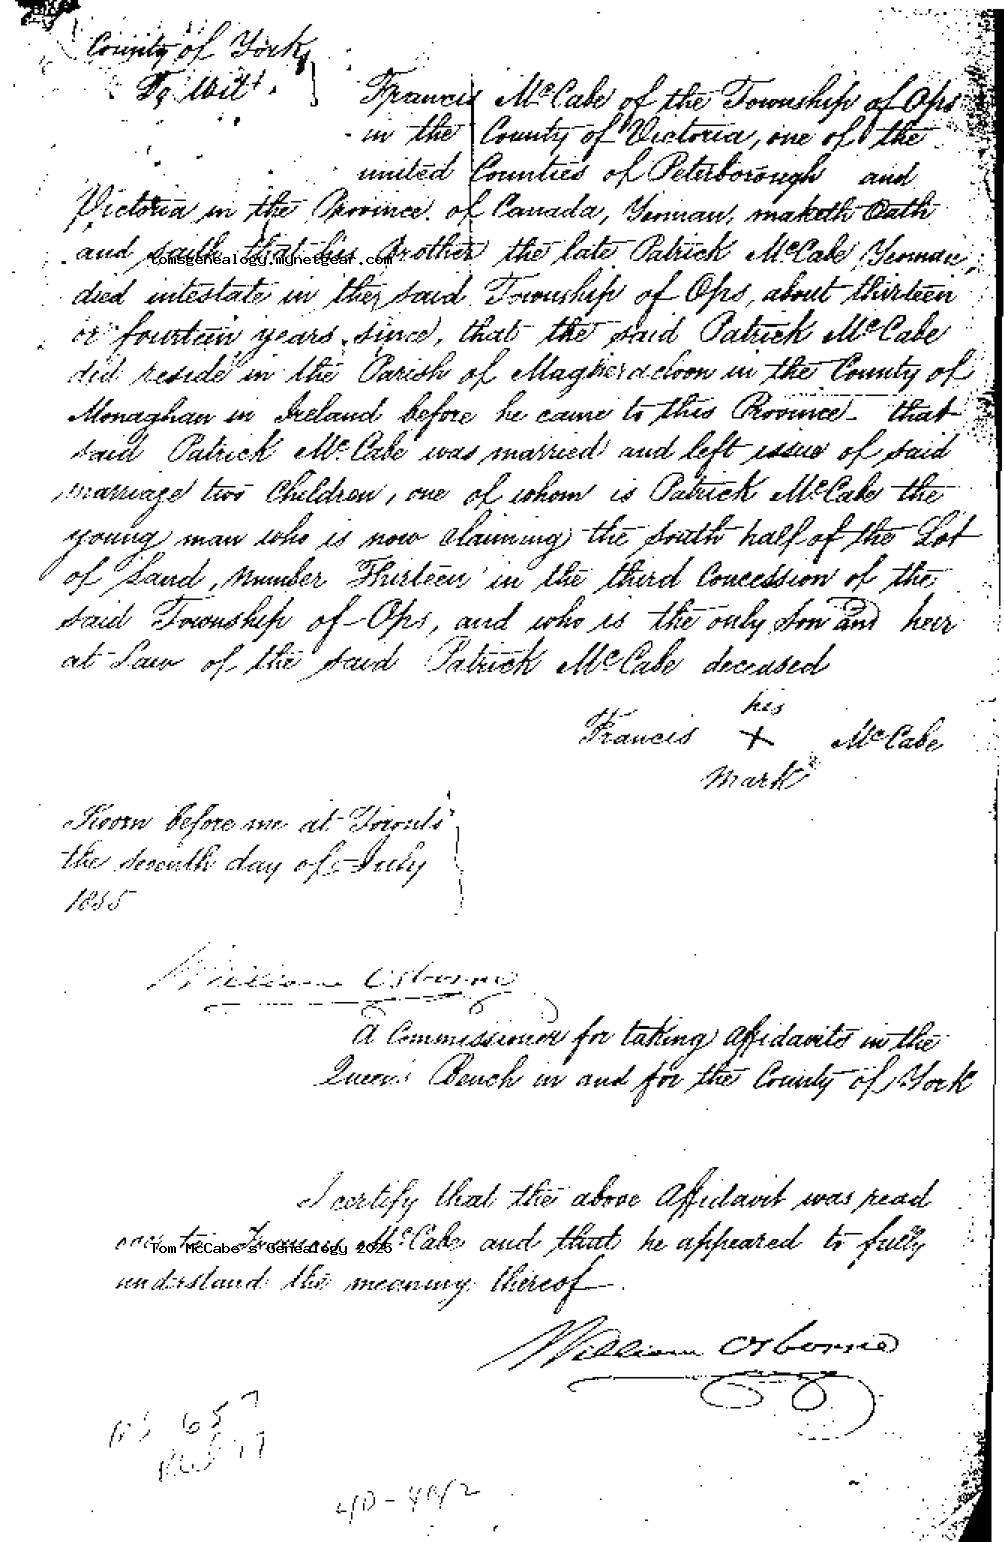 County of York
To Wit
Francis McCabe of the Township of Ops
in the County of Victoria, one of the
united Counties of Peterborough and
Victoria in the Province of Canada, Yeoman, maketh Oath
and saith that his Brother the late Patrick McCabe Yeoman
tomsgenealogy.mynetgear.com
died intestate in the said Township of Ops, about thirteen
or fourteen years since, that the said Patrick McCabe
did reside in the Parish of Magheracloon in the County of
Monaghan in Ireland before he came to this Province - that
said Patrick McCabe was married and left issue of said
marriage two Children, one of whom is Patrick McCabe the
young man who is now claiming the South half of the Lot
of Land, Number Thirteen in the third Concession of the
said Township of Ops, and who is the only Son and heir
at Law of the said Patrick McCabe deceased
his
Francis X McCabe
Mark
Sworn before me at Toronto
the seventh day of July
1855
William Osborne
A Commissioner for taking Affidavits in the
Queen's Bench in and for the County of York
I certify that the above Affidavit was read
over to Francis McCabe and that he appeared to fully
Tom McCabe's Genealogy 2025
understand the meaning thereof
William Osborne